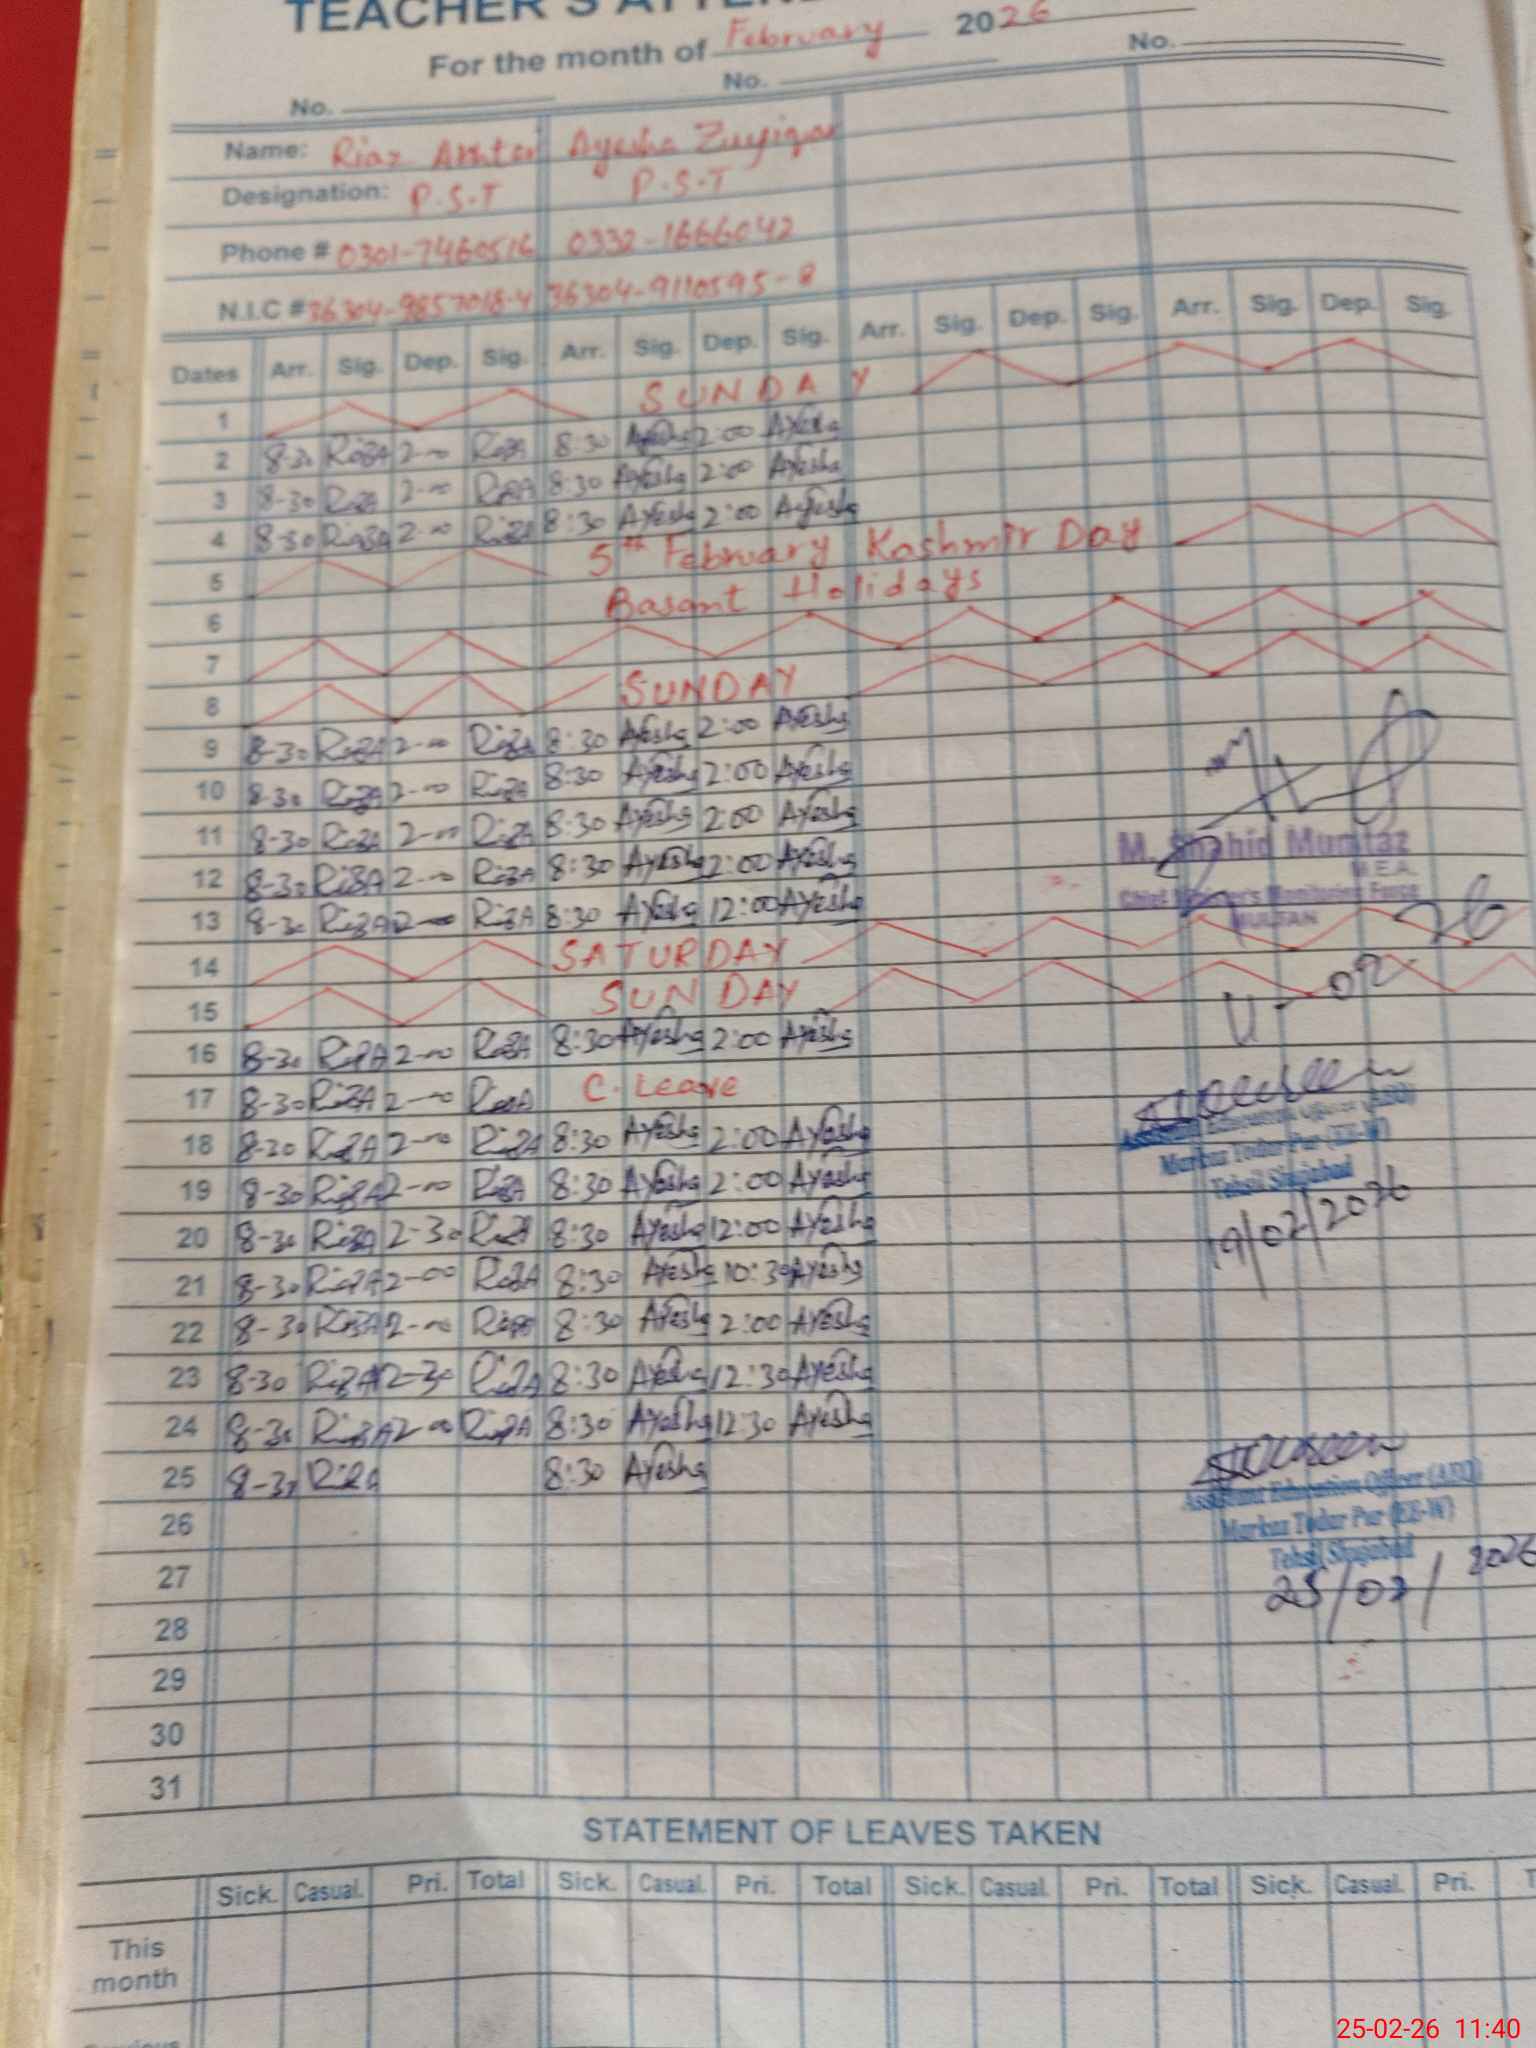 TEACHER'S ATTEN
For the month of February 2026
No. No. No.
Name: Riaz Akhtar Ayesha Zulfiqar
Designation: P.S.T P.S.T
Phone # 0301-7460516 0332-1666042
N.I.C # 36304-9857018-4 36304-9110595-8
Dates Arr. Sig. Dep. Sig. Arr. Sig. Dep. Sig. Arr. Sig. Dep. Sig. Arr. Sig. Dep. Sig.
1 SUNDAY
2 8-30 2-00 8:30 Ayesha 2:00 Ayesha
3 8-30 2-00 8:30 Ayesha 2:00 Ayesha
4 8-30 2-00 8:30 Ayesha 2:00 Ayesha
5 5th February Kashmir Day
6 Basant Holidays
7
8 SUNDAY
9 8-30 2-00 8:30 Ayesha 2:00 Ayesha
10 8-30 2-00 8:30 Ayesha 2:00 Ayesha
11 8-30 2-00 8:30 Ayesha 2:00 Ayesha
12 8-30 2-00 8:30 Ayesha 2:00 Ayesha
13 8-30 2-00 8:30 Ayesha 12:00 Ayesha
M. Shahid Mumtaz
M.E.A.
Chief Minister's Monitoring Force
MULTAN
14 SATURDAY
15 SUNDAY
16 8-30 2-00 8:30 Ayesha 2:00 Ayesha
17 8-30 2-00 C. Leave
18 8-30 2-00 8:30 Ayesha 2:00 Ayesha
Assistant Education Officer (AEO)
Markaz Todar Pur (EE-W)
Tehsil Shujabad
19/02/2026
19 8-30 2-00 8:30 Ayesha 2:00 Ayesha
20 8-30 2-30 8:30 Ayesha 12:00 Ayesha
21 8-30 2-00 8:30 Ayesha 10:30 Ayesha
22 8-30 2-00 8:30 Ayesha 2:00 Ayesha
23 8-30 2-30 8:30 Ayesha 12:30 Ayesha
24 8-30 2-00 8:30 Ayesha 12:30 Ayesha
25 8-30 8:30 Ayesha
Assistant Education Officer (AEO)
Markaz Todar Pur (EE-W)
Tehsil Shujabad
25/02/2026
26
27
28
29
30
31
STATEMENT OF LEAVES TAKEN
Sick. Casual. Pri. Total Sick. Casual. Pri. Total Sick. Casual. Pri. Total Sick. Casual. Pri. T
This month
25-02-26 11:40